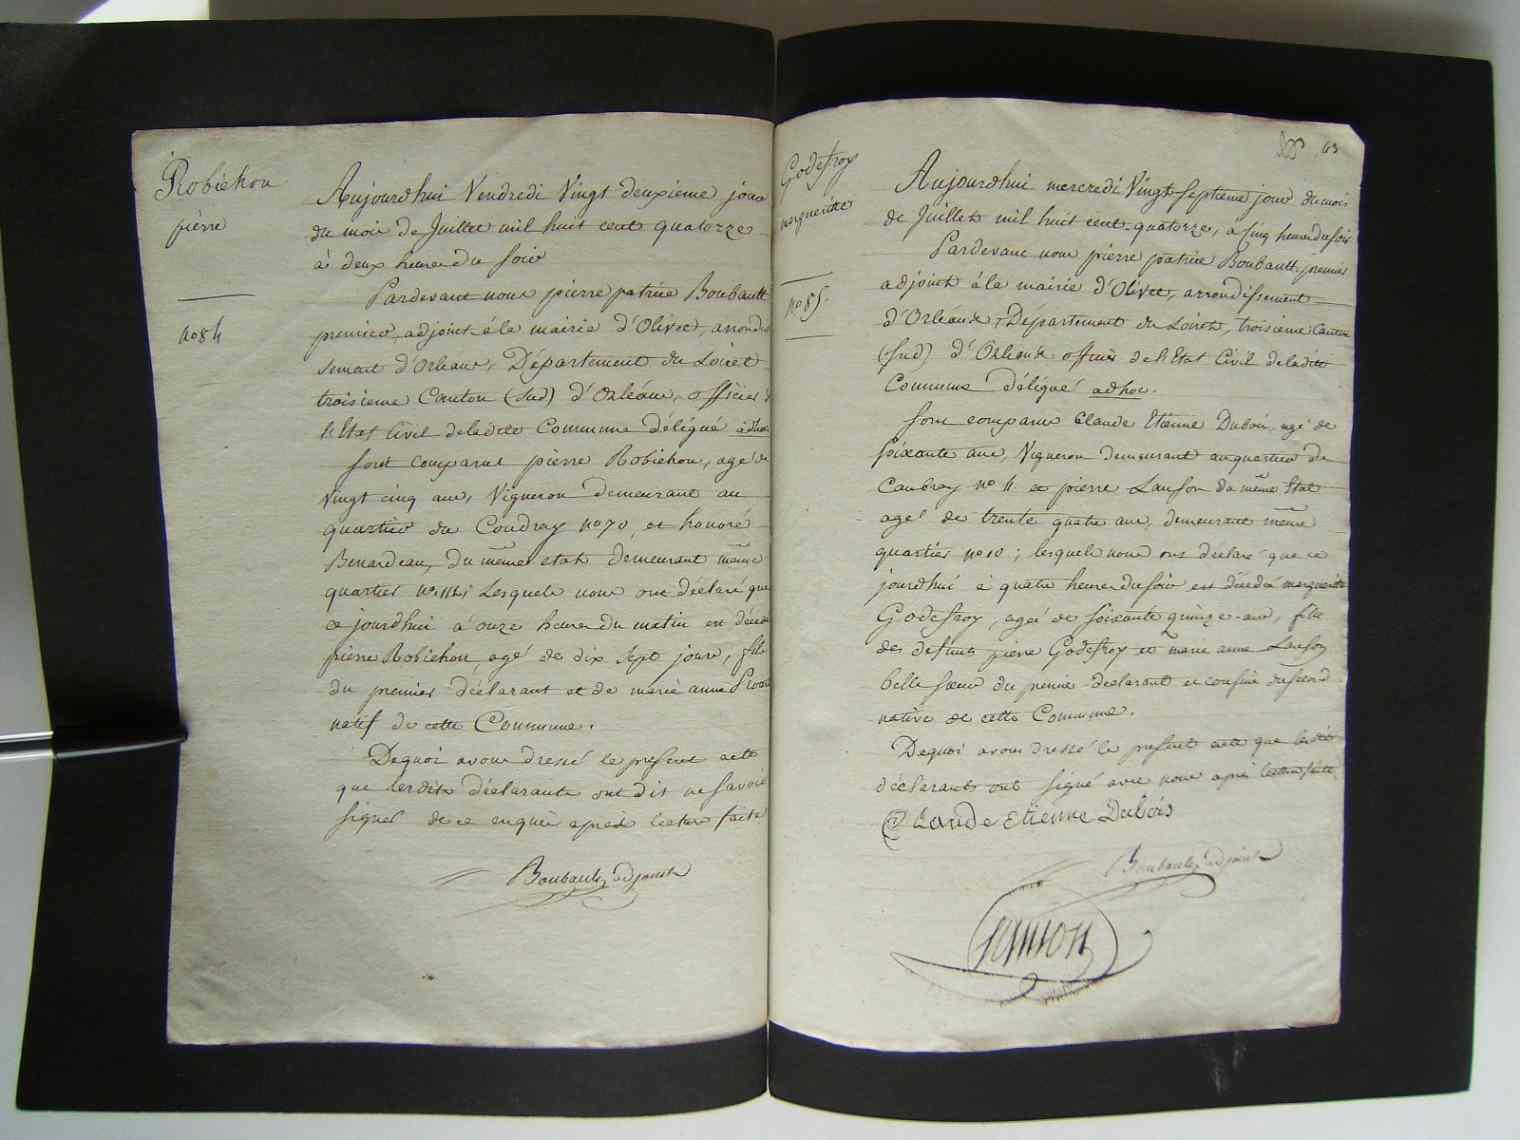 Robichon
pierre
no 84
Aujourdhui Vendredi Vingt deuxieme jour
du mois de Juillet mil huit cent quatorze
à deux heures du soir
Pardevant nous pierre patrice Boubault
premier adjoint à la mairie d'Olivet, arrondis
sement d'Orleans, Département du Loiret
troisieme Canton (sud) d'Orléans, officier d
l'Etat Civil de ladite Commune délégué adhoc
sont comparus pierre Robichon, agé de
vingt cinq ans, Vigneron demeurant au
quartier du Coudray no 70, et honoré
Benardeau, du même etat demeurant même
quartier no Lesquels nous ont déclaré que
ce jourdhui à onze heures du matin est décédé
pierre Robichon, agé de dix sept jours, fils
du premier déclarant et de marie anne
natif de cette Commune.
Dequoi avons dressé le present acte
que lesdits déclarants ont dit ne savoir
signer de ce enquis après lecture faite
Boubault adjoint
Godefroy
marguerite
no 85.
63
Aujourdhui mercredi Vingt septieme jour du mois
de Juillet mil huit cent quatorze, a cinq heures du soir
Pardevant nous pierre patrice Boubault premier
adjoint à la mairie d'Olivet, arrondissement
d'Orléans, Département du Loiret, troisieme Canton
(sud) d'Orleans officier de l'Etat Civil de ladite
Commune délégué adhoc.
sont comparus Claude Etienne Dubois, agé de
soixante ans, Vigneron demeurant au quartier de
Caubray no 4 et pierre Lanson du même Etat
agé de trente quatre ans, demeurant même
quartier no 10 ; lesquels nous ont déclaré que ce
jourdhui à quatre heures du soir est décédé marguerite
Godefroy, agée de soixante quinze ans, fille
des defunts pierre Godefroy et marie anne Lanson
belle soeur du premier declarant et cousine du second
native de cette Commune.
Dequoi avons dressé le present acte que lesdits
déclarants ont signé avec nous après lecture faite
Claude Etienne Dubois
Boubault adjoint